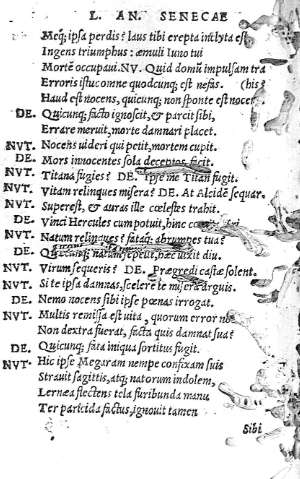 L. AN. SENECAE
Meq; ipsa perdis? laus tibi erepta inclyta est
Ingens triumphus: æmuli Iuno tui
Mortē occupaui. NV. Quid domū impulsam tra
Erroris istuc omne quodcunq; est nefas. (his?
Haud est nocens, quicunq; non sponte est nocens
DE. Quicunq; facto ignoscit, & parcit sibi,
Errare meruit, morte damnari placet.
NVT. Nocens uideri qui petit, mortem cupit.
DE. Mors innocentes sola deceptos facit.
NVT. Titana fugies? DE. Ipse me Titan fugit.
NVT. Vitam relinques misera? DE. At Alcidē sequar.
NVT. Superest, & auras ille cœlestes trahit.
DE. Vinci Hercules cum potuit, hinc
NVT. Natum relinques? fataq; abrumpes tua?
DE. Quicunq; natus sepelit, hæc uixit diu.
NVT. Virum sequeris? DE. Prægredi castæ solent.
NVT. Si te ipsa damnas, scelere te misera arguis.
DE. Nemo nocens sibi ipse pœnas irrogat.
NVT. Multis remissa est uita, quorum error no
Non dextra fuerat, facta quis damnat sua?
DE. Quicunq; fata iniqua sortitus fugit.
NVT. Hic ipse Megaram nempe confixam suis
Strauit sagittis, atq; natorum indolem,
Lernæa flectens tela furibunda manu
Ter paricida factus, ignouit tamen
Sibi